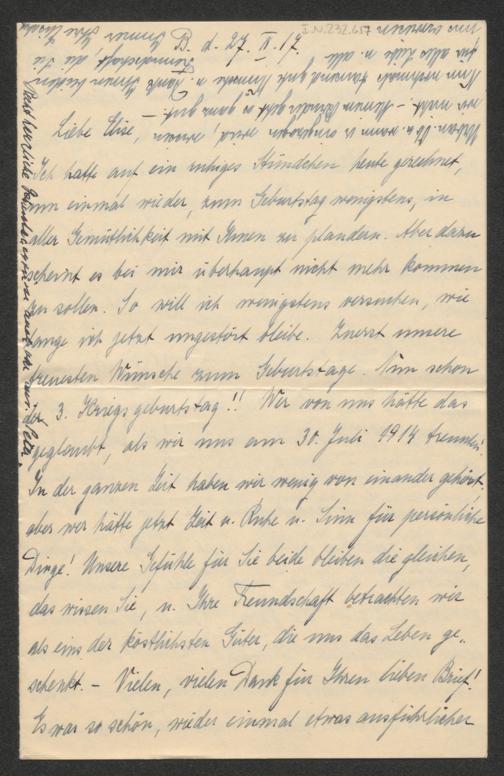 I.N. 232.657
B. d. 27. II. 17.
Liebe Elise,
Ich hatte auf ein ruhiges Stündchen heute gerechnet,
um einmal wieder, zum Geburtstag wenigstens, in
aller Gemütlichkeit mit Ihnen zu plaudern. Aber dazu
scheint es bei mir überhaupt nicht mehr kommen
zu sollen. So will ich wenigstens versuchen, wie
lange ich jetzt ungestört bleibe. Zuerst unsere
treuesten Wünsche zum Geburtstage. Nun schon
der 3. Kriegsgeburtstag!! Wer von uns hätte das
geglaubt, als wir uns am 30. Juli 1914 trennten.
In der ganzen Zeit haben wir wenig von einander gehört,
aber wer hätte jetzt Zeit u. Ruhe u. Sinn für persönliche
Dinge! Unsere Gefühle für Sie beide bleiben die gleichen,
das wissen Sie, u. Ihre Freundschaft betrachten wir
als eins der köstlichsten Güter, die uns das Leben ge-
schenkt. – Vielen, vielen Dank für Ihren lieben Brief!
Es war so schön, wieder einmal etwas ausführlicher
Nun nochmals tausend gute Wünsche u. Dank Ihnen beiden
für alle Liebe u. alle Freundschaft, die Sie
uns erweisen
Immer Ihre